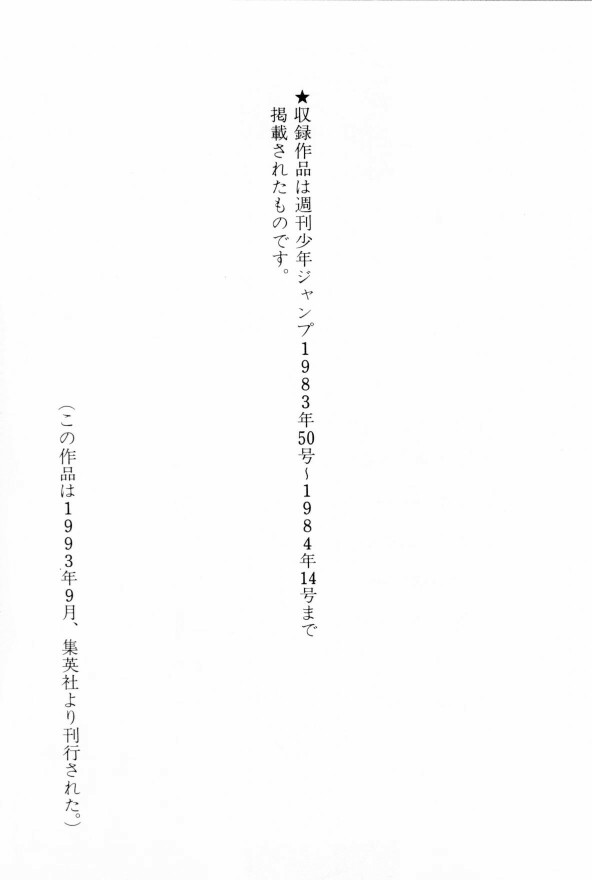 ★収録作品は週刊少年ジャンプ1983年50号~1984年14号まで
掲載されたものです。
(この作品は1993年9月、集英社より刊行された。)